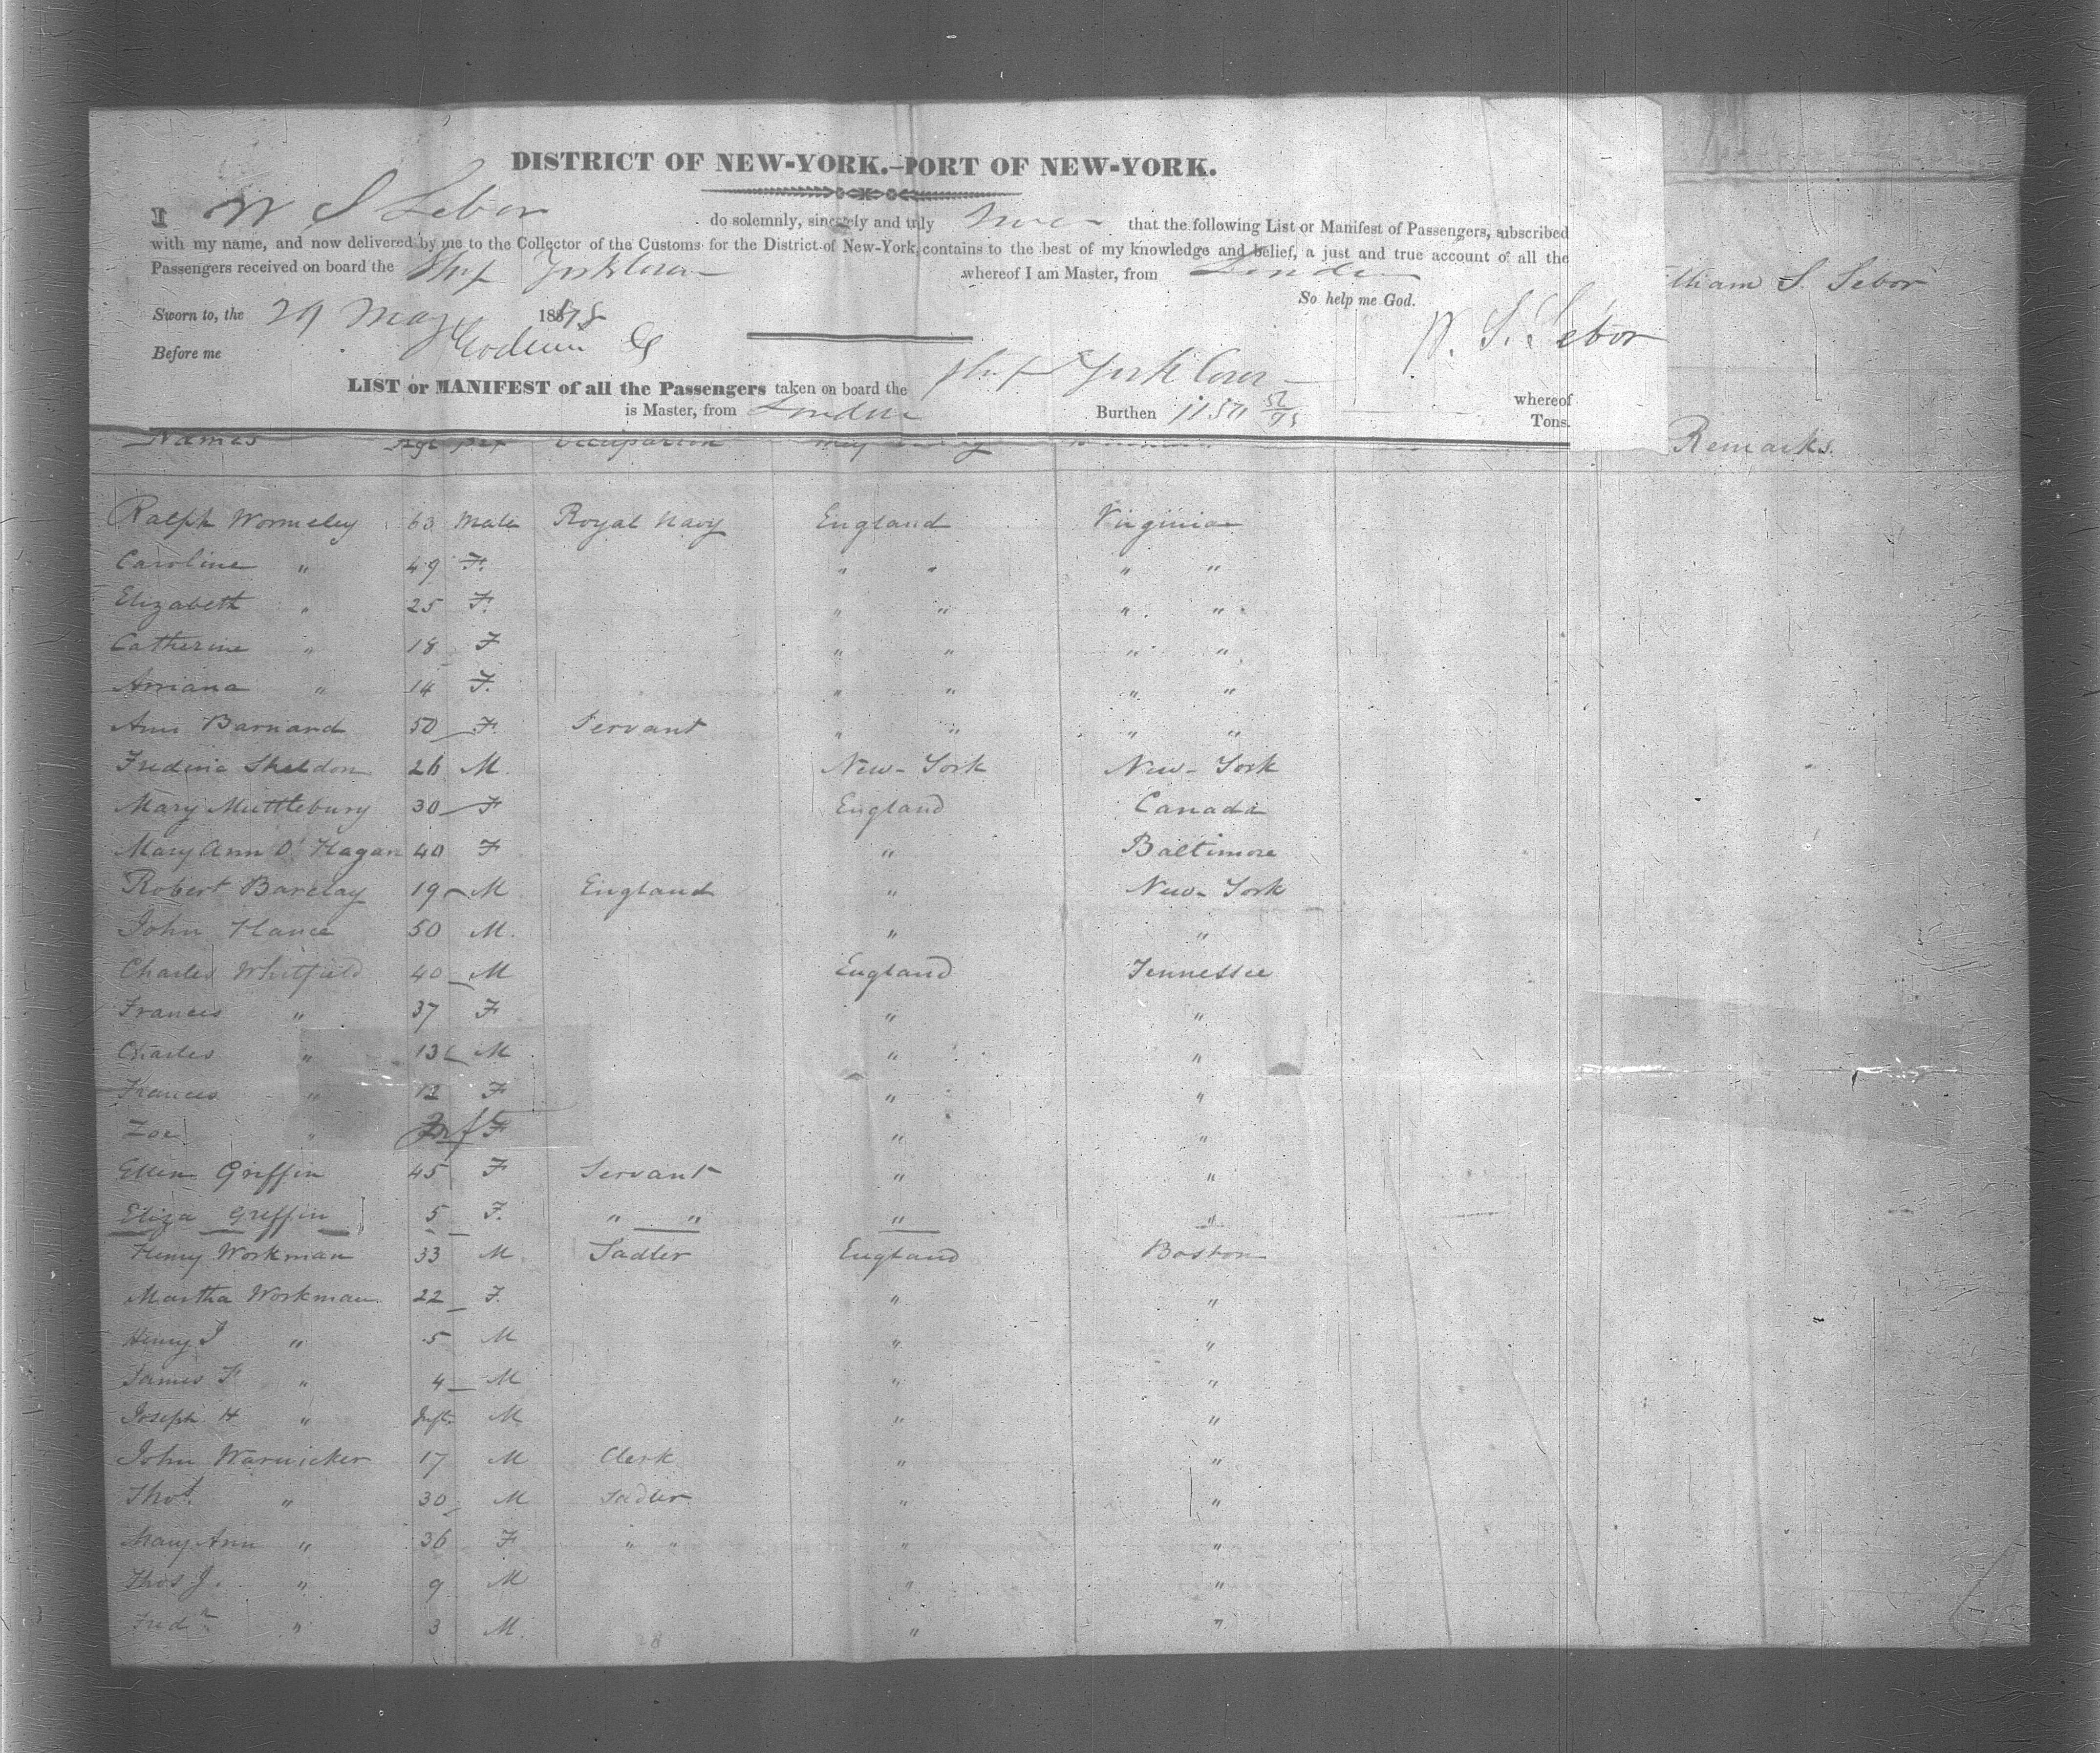 DISTRICT OF NEW-YORK.—PORT OF NEW-YORK.
I W S Sebor do solemnly, sincerely and truly that the following List or Manifest of Passengers, subscribed
with my name, and now delivered by me to the Collector of the Customs for the District of New-York, contains to the best of my knowledge and belief, a just and true account of all the
Passengers received on board the Ship Yorktown whereof I am Master, from London
William S. Sebor
So help me God.
Sworn to, the 29 May 1848
W. S. Sebor
Before me
LIST or MANIFEST of all the Passengers taken on board the Ship Yorktown whereof
is Master, from London Burthen 1150 Tons.
Names Age Sex Occupation Remarks.
Ralph Wormeley 63 Male Royal Navy England Virginia
Caroline " 49 F. " " " "
Elizabeth " 25 F. " " " "
Catherine " 18 F " " " "
Arriana " 14 F. " " " "
Ann Barnard 50 F. Servant " " " "
Frederic Sheldon 26 M. New-York New-York
Mary Muttlebury 30 F England Canada
Mary Ann O'Hagan 40 F " Baltimore
Robert Barclay 19 M England " New-York
John Hance 50 M. " "
Charles Whitfield 40 M England Tennessee
Frances " 37 F " "
Charles " 13 M " "
Frances " 12 F " "
Zoe " Inf F " "
Ellen Griffin 45 F Servant " "
Eliza Griffin 5 F. " " " "
Henry Workman 33 M. Sadler England Boston
Martha Workman 22 F. " "
Henry J " 5 M " "
James F " 4 M " "
Joseph H " Inft. M " "
John Warnicker 17 M Clerk " "
Thos. " 30 M Sadler " "
Mary Ann " 36 F " " " "
Thos J. " 9 M " "
Fredk " 3 M. " "